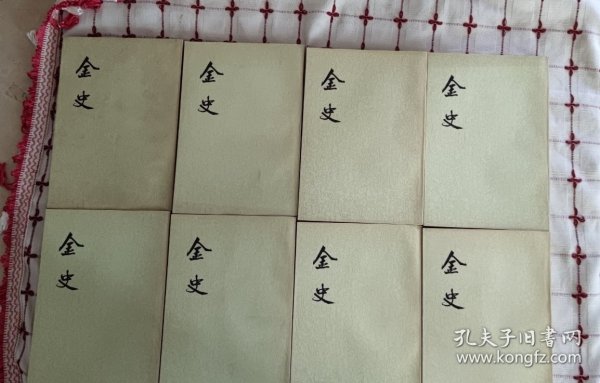 金史
金史
金史
金史
金史
金史
金史
金史
孔夫子旧书网
www.kongfz.com